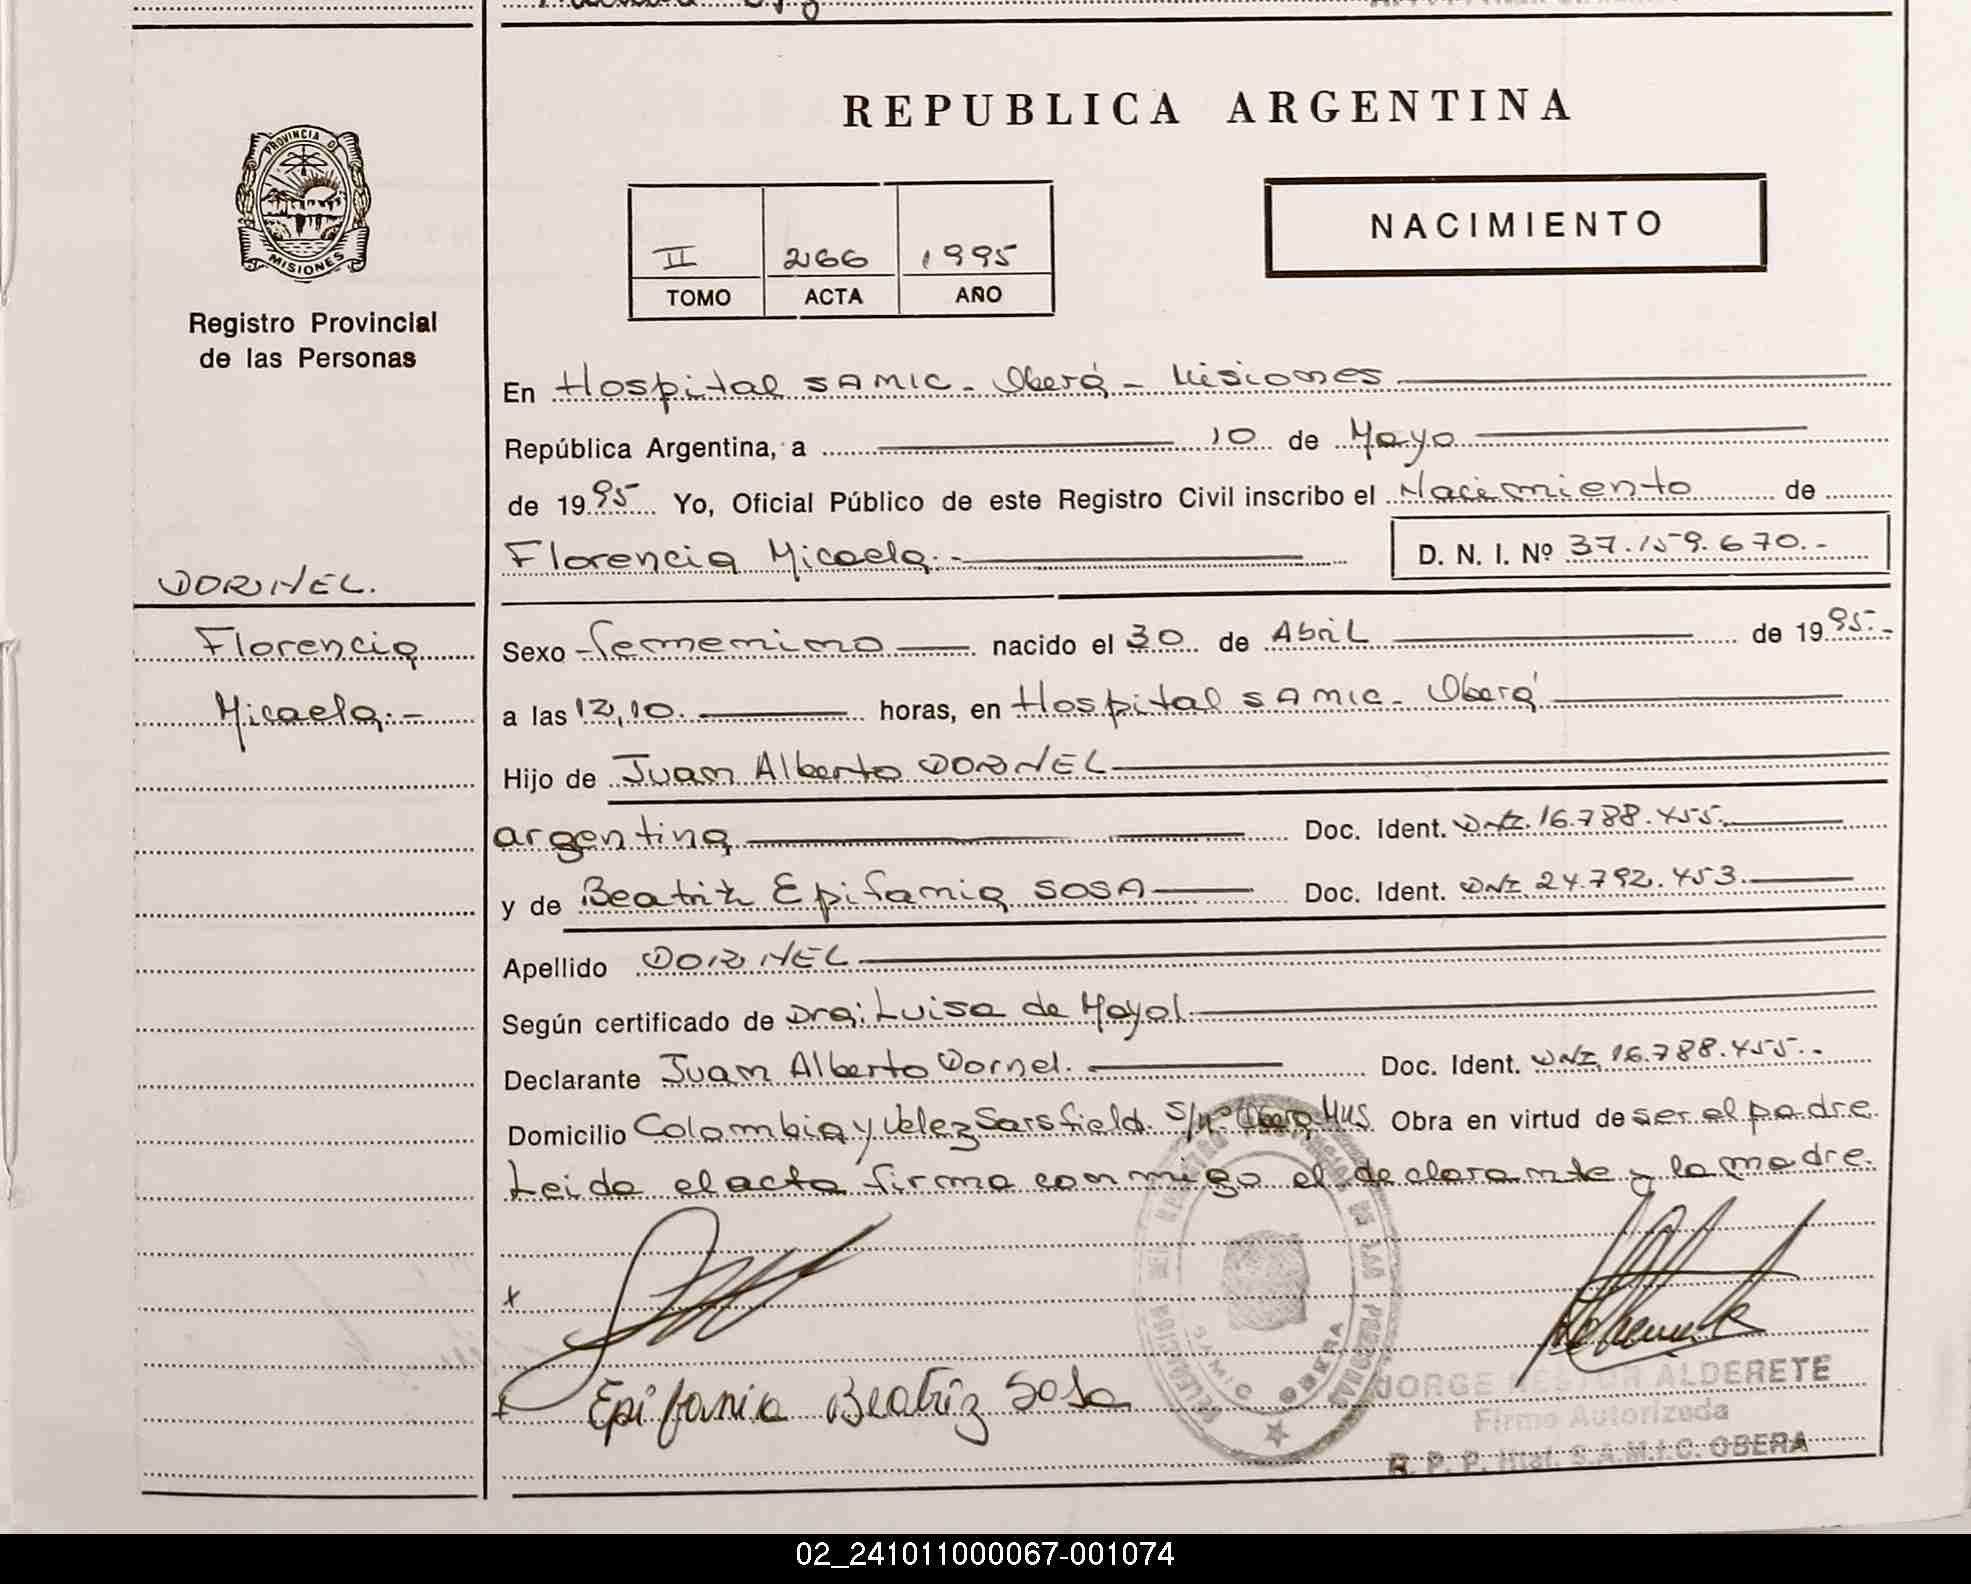 REPUBLICA ARGENTINA
PROVINCIA D
MISIONES
Registro Provincial
de las Personas
II 266 1995
TOMO ACTA AÑO
NACIMIENTO
En Hospital SAMIC - Oberá - Misiones
República Argentina, a 10 de Mayo
de 1995 Yo, Oficial Público de este Registro Civil inscribo el Nacimiento de
Florencia Micaela.- D. N. I. Nº 37.159.670.-
DORNEL.
Florencia
Micaela.-
Sexo femenino nacido el 30 de Abril de 1995.-
a las 12,10. horas, en Hospital SAMIC - Oberá
Hijo de Juan Alberto DORNEL
argentina Doc. Ident. DNI. 16.788.455.
y de Beatriz Epifania SOSA Doc. Ident. DNI 24.792.453.
Apellido DORNEL
Según certificado de Dra: Luisa de Mayol.
Declarante Juan Alberto Dornel. Doc. Ident. DNI. 16.788.455.-
Domicilio Colombia y Velez Sarsfield. S/Nº Oberá Mns. Obra en virtud de ser el padre.
Leida el acta firma conmigo el declarante y la madre.
x
x Epifania Beatriz Sosa
DELEGACION DEL REGISTRO PROVINCIAL DE LAS PERSONAS
SAMIC OBERA
JORGE NESTOR ALDERETE
Firma Autorizada
R. P. P. Htal. S.A.M.I.C. OBERA
02_241011000067-001074